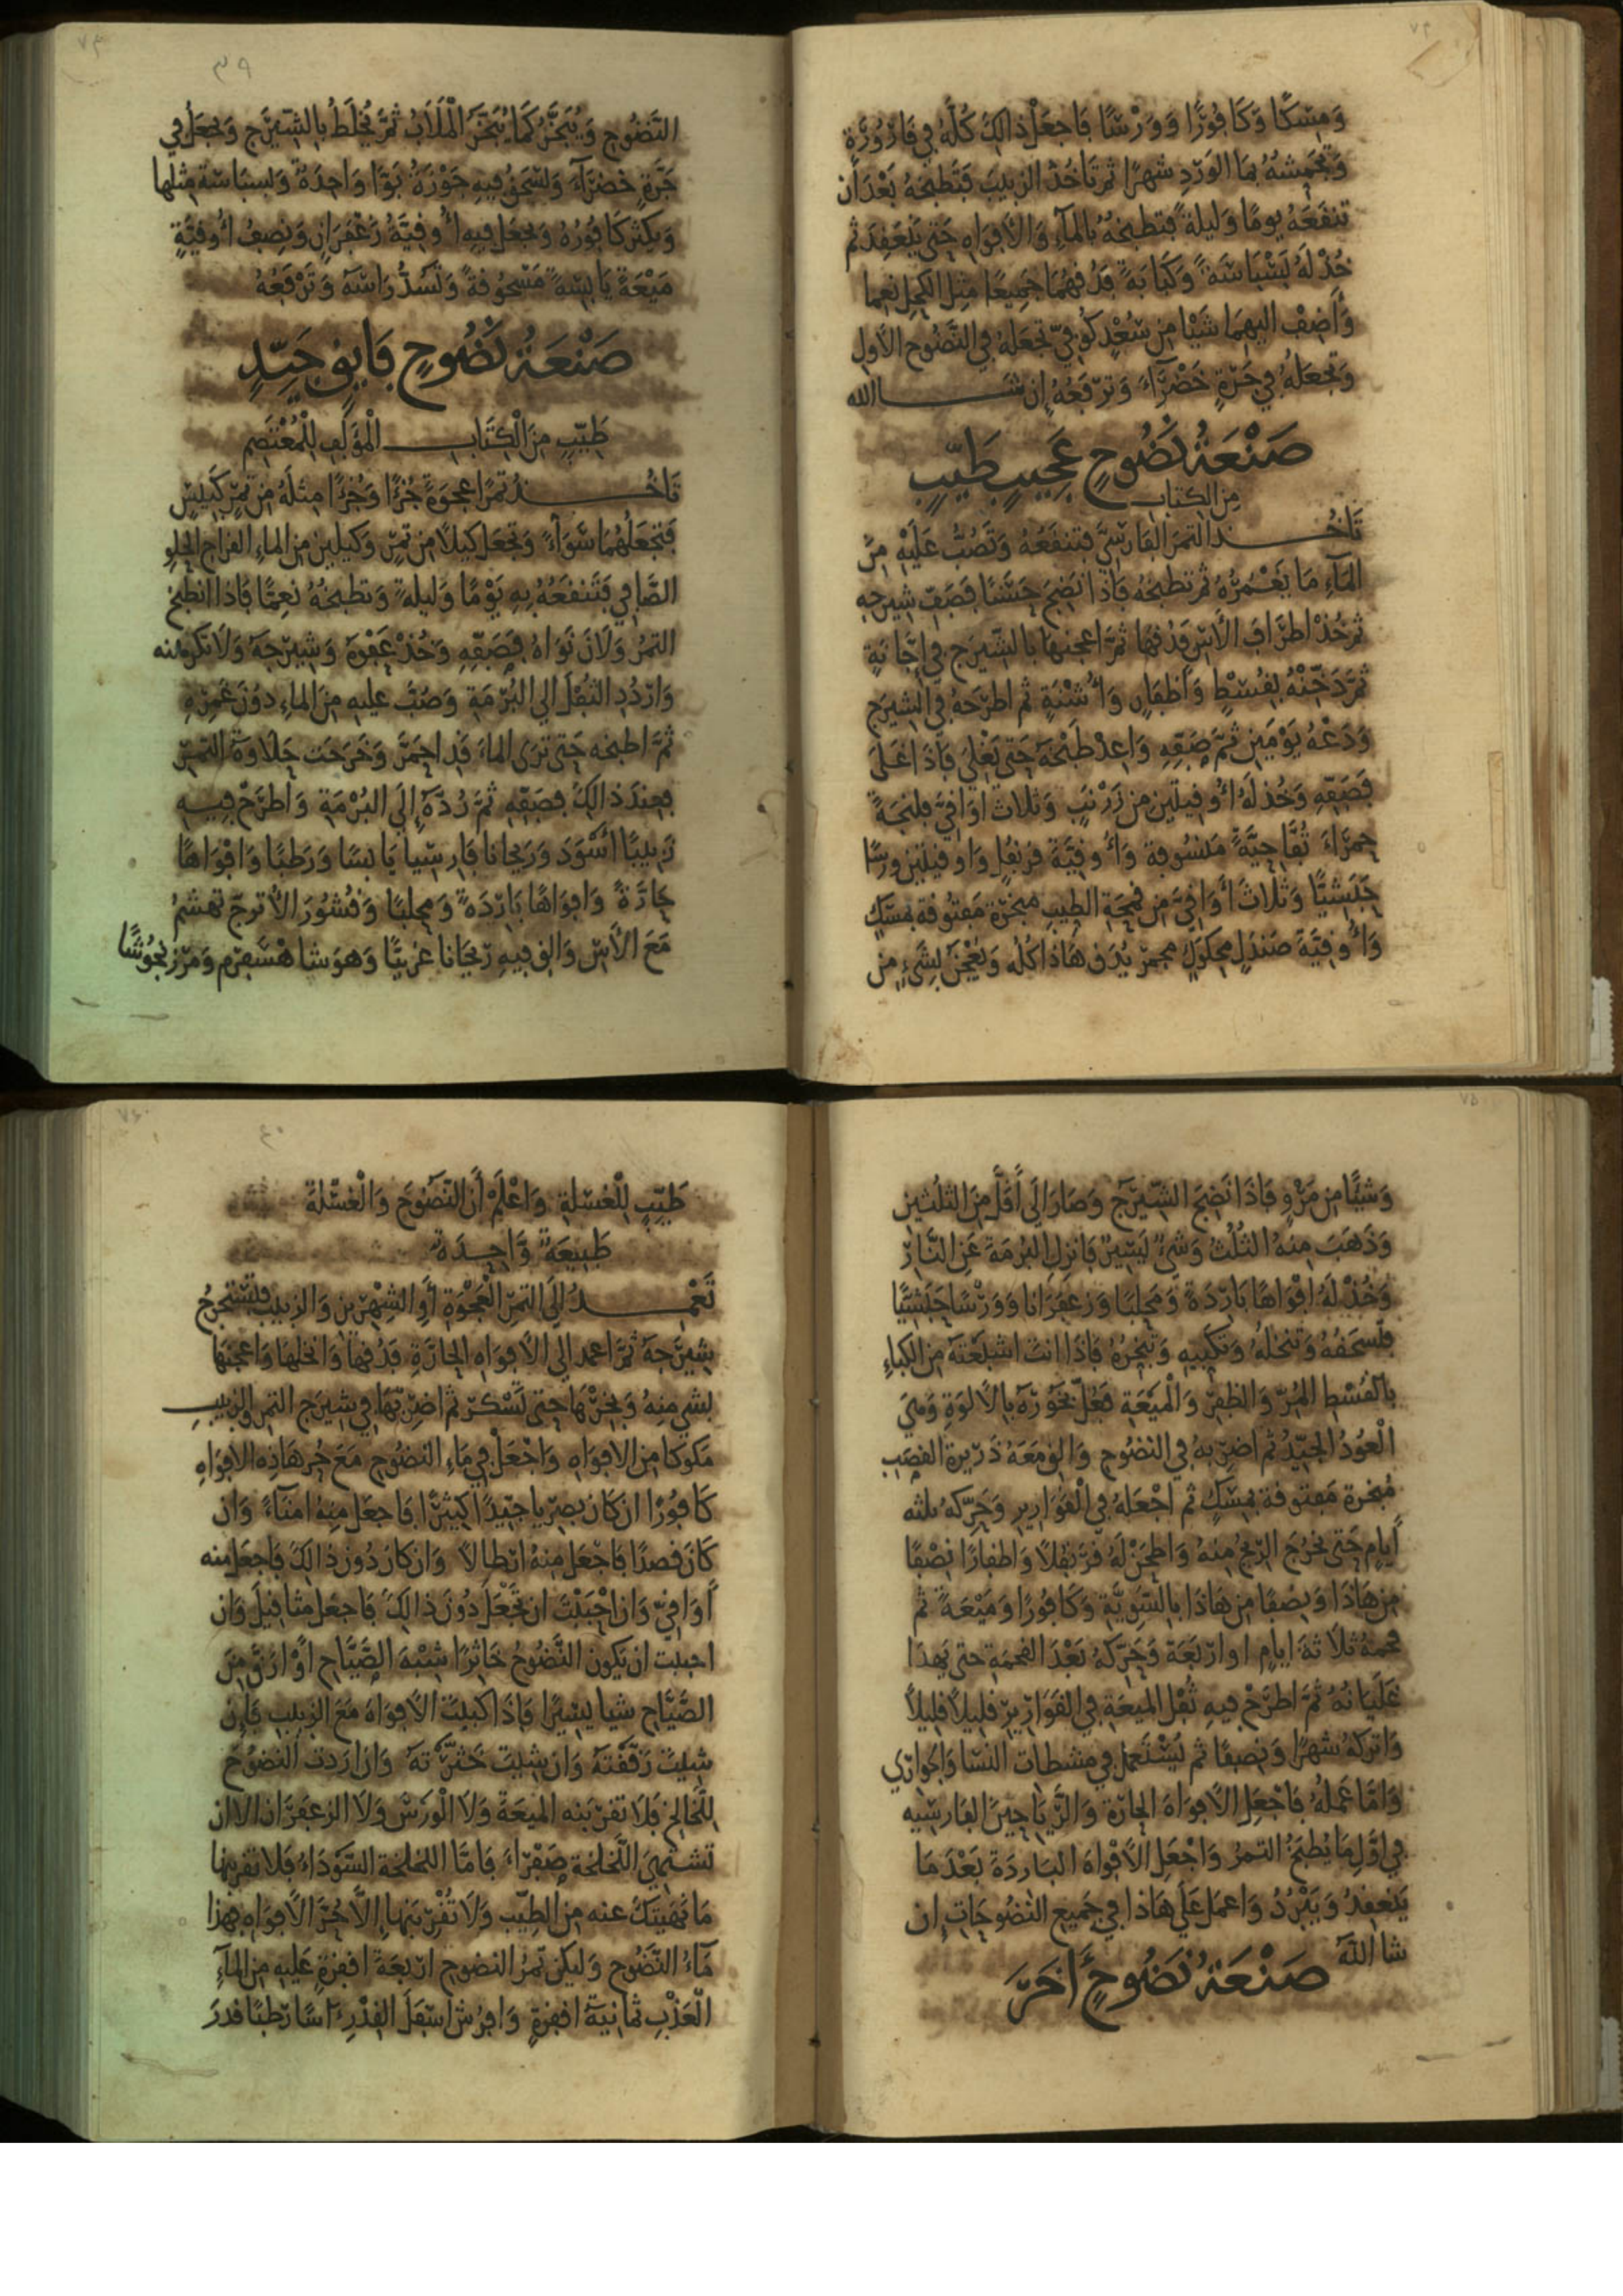 ٧٣
وَمِسْكًا وَكَافُورًا وَوَرْسًا فَاجْعَلْ ذَالِكَ كُلَّهُ فِي قَارُورَةٍ
بِمَا الوَرْدِ شهرًا ثم تَاخُذ الزبيبَ فَتَطبخهُ بَعْدَ ان
تنقعَهُ يومًا وَليلةً فتطبخهُ بالمآءِ وَالأَفوَاهِ حَتى يَنْعَقِدَ ثم
خُذ لَهُ بَسْبَاسَةً وَكَبَابَةً فَدُقهُمَا جَميعًا مثل الكحل نعما
وَأَضِفْ اليهمَا شَيْا مِن سُعْدٍ كُوفيّ تجعَلهُ في النَّضُوح الأول
وَتجعَلهُ في جَرّةٍ خَضْرَآءَ وَترْفَعُهُ إِن شَا الله
صَنْعَةُ نَضُوحٍ عَجِيبٍ طَيّبٍ
مِنَ الكتاب
تَاخُذ التمرَ الفَارسيَّ فتنقعُهُ وَتَصُبُّ عَلَيْهِ مِنَ
المآءِ مَا يَغْمُرُهُ ثم تطبخه فَاذَا نَضِجَ حَسَنًا فَصَفّ شيرجه
ثم خُذْ اطرَافَ الأسِ فَدُقهَا ثمَّ اعجنهَا بالشّيرَج في إِجَّانَةٍ
ثمَّ دَخّنْهُ بقُسْطٍ وَأَظفَارٍ وَأُشْنَةٍ ثم اطرَحهُ في الشيرَج
وَدَعْهُ يَوْمَين ثمَّ صَفّهِ وَاعِدْ طَبْخَهُ حَتى يَغْلِيَ فَاذَا غَلَى
فَصَفّهِ وَخُذ لَهُ أُوقِيتَين مِن زَرْنَبٍ وَثلَاث اوَاقيَّ فلنجَةً
حمرَآءَ تُفَّاحِيَّةً مَنسُوفة وَأُوقيَّةَ قرنفُلٍ وَاوقيتَين وَرسًا
حَبَشيًّا وَثلَاثَ أَوَاقيَّ مِن قمحَةِ الطيبِ مبخّرَة مَفتوقة بمسْكٍ
وَأُوقيَّةَ صَندَلٍ محكوكٍ مجمرٍ يُدَق هَاذَا كُلُه وَيُعْجَنُ بشَيءٍ مِن
٧٤
٣٩
النَّضُوحِ وَيُبَخَّرُ كَمَا يُبَخَّرُ المَلَابُ ثمَّ يُخلَطُ بِالشِّيرَج وَيجعَلُ في
جَرّةٍ خَضْرَآءَ وَيُسْحَقُ فيهِ جَوْزَةُ بَوَّا وَاحِدَةٌ وَبسبَاسَة مِثلها
وَيكثر كَافُورُهُ وَيجعَل فيهِ أُوقيَّةُ زَعْفَرَانٍ وَنِصفُ أُوقيَّةٍ
مَيْعَةً يَابسَةً مَسْحُوقةً وَتَسُدُّ رَاسَهُ وَتَرْفَعُهُ
صَنْعَةُ نَضُوحٍ فَايِقٍ جَيّدٍ
طَيّبٍ مِنَ الْكِتَابِ المُؤَلَّفِ لِلْمُعْتَصِمِ
تَاخُذ تمرًا عجوَةً جُزءًا وَجُزءًا مِثلَهُ مِن تمرٍ كَبيسٍ
فَتجعَلُهُمَا سَوَآءً وَتجعَل كيلًا مِن تمرٍ وَكيلين مِن الماءِ القراح الحُلوِ
الصَّافي فَتَنقعُهُ بهِ يَوْمًا وَليلةً وَتطبخُهُ نعِمَّا فَاذَا انطبخ
التمرُ وَلَانَ نَوَاهُ فصَفّهِ وَخُذْ عَفْوَهُ وَشيرَجَهُ وَلَا تكرههُ
وَارْدُدِ الثُّفْلَ الي البُرْمَةِ وَصُبَّ عليهِ مِنَ الماءِ دُونَ غَمْرِهِ
ثمَّ اطبخه حَتى ترَى الماءَ قَدِ احمَرَّ وَخَرَجَت حَلَاوَةُ التمرِ
فعِندَ ذَالكَ فصَفّهِ ثمَّ رُدَّهُ إِلَى البُرْمَةِ وَاطْرَحْ فيهِ
زَبيبًا أَسْوَدَ وَرَيحَانا فَارِسيا يَابسًا وَرَطبًا وَافْوَاهًا
حَارَّةً وَافوَاهًا بَارِدَةً وَمحلبًا وَقُشُورَ الأُترجّ تهَشمُ
مَعَ الأسِ وَالقِ فيهِ رَيحَانا عَرَبيًّا وَهوَ شَا هَسْفَرَم وَمَرْزَنجُوشًا
٧٥
وَشيًّا مِن مَرْوٍ فَاذَا نَضِجَ الشّيرَجُ وَصَارَ الَى أَقَلَّ مِنَ الثلثين
وَذَهَبَ مِنهُ الثُلُثُ وَشَيءٌ يَسِيرٌ فَانزِل البُرمَةَ عَنِ النَّارِ
وَخُذ لَهُ افْوَاهًا بَارِدَةً وَمحلبًا وَزَعفَرَانا وَوَرْسًا حَبَشيًّا
فتسحَقُهُ وَتنخُلهُ وَتكبيهِ وَتبخرُهُ فَاذَا انتَ اشبَعْتَهُ مِن الكِبَاءِ
بالقُسْطِ المُرّ وَالظفرِ وَالمَيْعَةِ فَعُلَّ بخَوُرَهُ بالالوَةِ وَهيَ
الْعُودُ الجَيّدُ ثم اضرِبهُ في النضُوح وَالقِ مَعَهُ ذَرِيرَة القصَب
مُبخرَة مَفتوقة بمسْكٍ ثم اجْعَلهُ في الْقَوَارِيرِ وَحَرّكهُ ثلثه
أَيَامٍ حَتى تخرُجَ الرّيحُ مِنهُ وَاطحَنْ لَهُ قَرَنفُلًا وَاظفارًا نِصْفًا
مِن هَاذَا وَنصفًا مِن هَاذَا بالسَّوِيَّةِ وَكَافُورًا وَمَيْعَةً ثم
قحمهُ ثلَاثةَ أَيامٍ اوارْبَعَةً وَحَرّكهُ بَعْدَ القحمَةِ حَتى يَهدَا
غَلَيَانهُ ثمَّ اطرَحْ فيهِ ثُفلَ الميعَةِ في القَوَارِيرِ قَلِيلًا قَلِيلًا
وَاترُكهُ شهرًا وَنصفًا ثم يُسْتَعمل في مشطات النّسَا وَالجوَارِي
وَامّا عَمَلهُ فَاجْعَلِ الأَفوَاهَ الحارّةَ وَالرَّيَاحِينَ الفَارسيه
في اوَّلِ مَا يُطبَخُ التمرُ وَاجْعَلِ الأَفوَاهَ البَارِدَةَ بَعْدَ مَا
يَنعَقِدُ وَيَبْرُدُ وَاعمَل عَلَى هَاذَا في جَميع النضُوحَاتِ إن
شا اللهُ
صَنْعَةُ نَضُوحٍ أخَرَ
٧٦
٤٠
طَيّبٍ لِلْغِسْلَةِ وَاعْلَمْ أَنَّ النَّضُوحَ وَالْغِسْلَةَ
طَبيعَةٌ وَاحِدَةٌ
تَعْمِدُ إِلَى التمرِ العَجْوَةِ أَوِ الشِّهْرِيزِ وَالزبيبِ فتَسْتخرِجُ
شيرَجَهُ ثمَّ اعمد الي الأَفوَاهِ الحارَّةِ فَدُقهَا وَانخلهَا وَاعجنهَا
بشي مِنهُ وَبخرْهَا حَتى تَسْكَرَ ثم اضرِبهَا في شيرَج التمر وَالزبيبِ
مَكوكا مِن الأفوَاهِ وَاجْعَلْ في مَاءِ النضُوح مَعَ جُزءِ هَاذِه الأفوَاهِ
كَافُورًا ان كَانَ بصريا جَيّدًا كَثيرًا فَاجعَل مِنهُ امْنَاءً وَان
كَانَ قصدًا فَاجْعَل مِنهُ ارْطالًا وَان كَان دُونَ ذَالكَ فَاجعَل منه
أوَاقيَّ وَان احْبَبْتَ ان تجعَلَ دُونَ ذَالكَ فَاجعَل مثاقيلَ وَان
احببت ان يكون النَّضُوحُ خَاثِرًا شِبْهَ الصَّيَّاح اوْ ارَقَّ مِنَ
الصَّيَّاح شيا يسيرًا فَاذَا اكبَبتَ الأفوَاهَ مَعَ الزبيب فَإِن
شيتَ رَقّقْتَهُ وَان شيتَ خَثَّرْتَهُ وَان ارَدت النضُوحَ
لِلّخَالخِ فَلَا تقرّبنه الميعَةَ وَلَا الْوَرْسَ وَلَا الزعفَرَان الا ان
تشتهِيَ اللّخلخة صَفْرَاءَ فَامَّا اللخلخة السَّوْدَاءُ فَلَا تقربها
مَا نَهَيتكَ عنه مِن الطّيبِ وَلَا تُقَرّبَنهَا إِلَّا حُرَّ الأفوَاهِ فهذا
مَآءُ النَّضُوح وَليكن تمرُ النضوح ارْبَعَة اقفزةٍ عَليهِ مِن المآءِ
الْعَذْبِ ثمَانيَةُ اقفزةٍ وَافرُش اسفَلَ القِدْرِ آسًا رَطبًا قدرَ